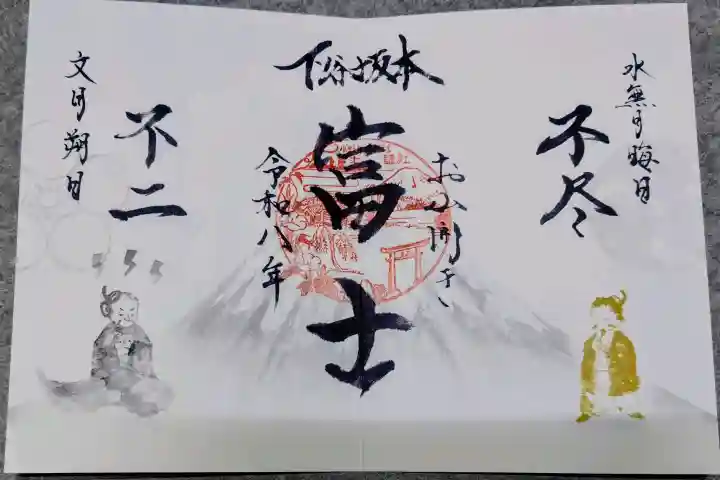 下谷坂本
水無月晦日
不尽
お山開き
富士
令和八年
不二
文月朔日